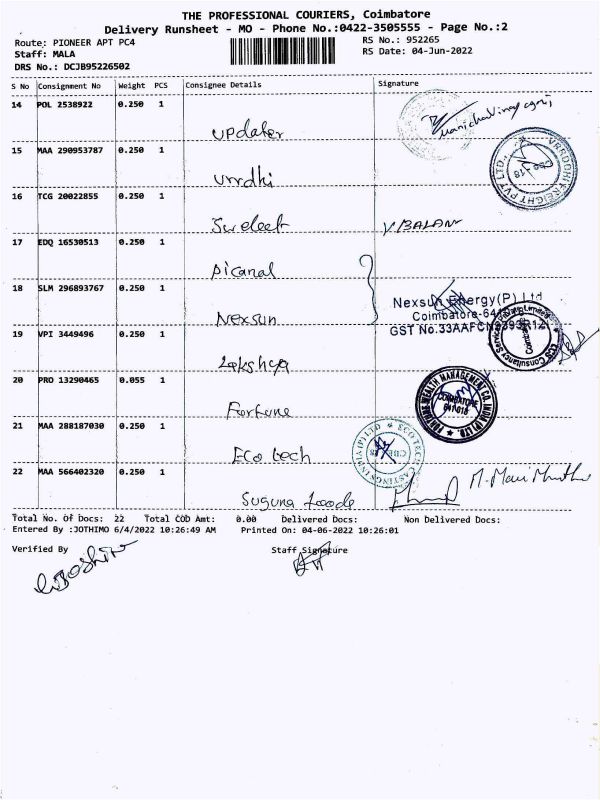 THE PROFESSIONAL COURIERS, Coimbatore
Delivery Runsheet - MO - Phone No.:0422-3505555 - Page No.:2
Route: PIONEER APT PC4
RS No.: 952265
Staff: MALA
RS Date: 04-Jun-2022
DRS No.: DCJB95226502
S No Consignment No Weight PCS Consignee Details Signature
14 POL 2538922 0.250 1
updater
15 MAA 290953787 0.250 1
VRRDDHI FREIGHT PVT LTD.
vrrdhi
16 TCG 20022855 0.250 1
V BALAN
17 EDQ 16530513 0.250 1
picanal
18 SLM 296893767 0.250 1
Nexsun Energy(P) Ltd
Nexsun
19 VPI 3449496 0.250 1
20 PRO 13290465 0.055 1
FORTUNE WEALTH MANAGEMENT CO. INDIA (P) LTD.
COIMBATORE
641 018
Fortune
21 MAA 288187030 0.250 1
ECO TECH CASTINGS INDIA (P) LTD
Eco tech
22 MAA 566402320 0.250 1
Suguna foods
Total No. Of Docs: 22 Total COD Amt: 0.00 Delivered Docs: Non Delivered Docs:
Entered By :JOTHIMO 6/4/2022 10:26:49 AM Printed On: 04-06-2022 10:26:01
Verified By Staff Signature